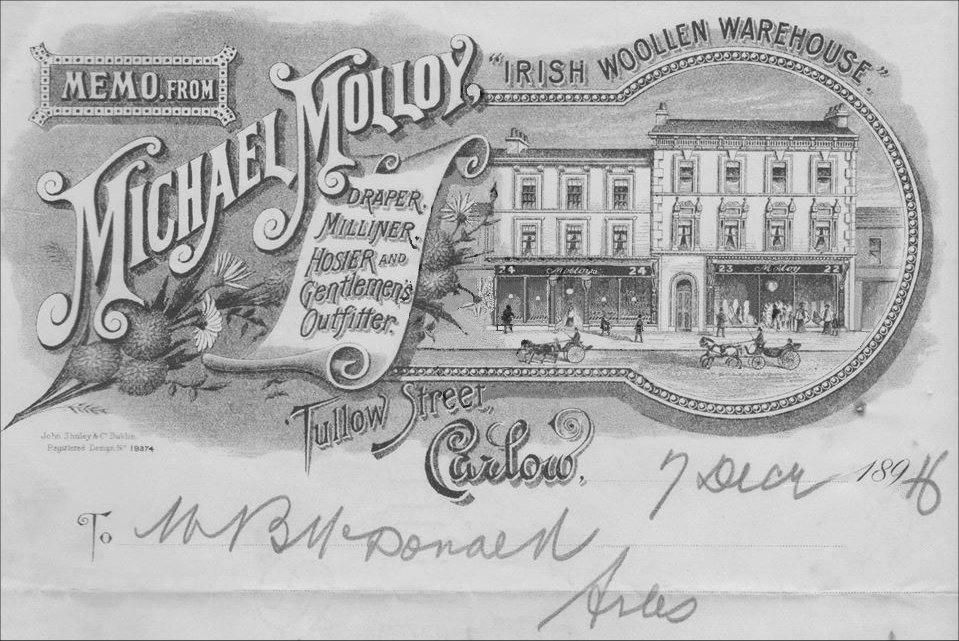 MEMO. FROM
MICHAEL MOLLOY,
"IRISH WOOLLEN WAREHOUSE".
DRAPER,
MILLINER,
HOSIER AND
Gentlemen's
Outfitter.
24 Molloy's 24
23 Molloy 22
Tullow Street,
Carlow,
John Shuley & Co. Dublin.
Registered Design No 19374
7 Decr 189
To Mr B McDonald
Arles